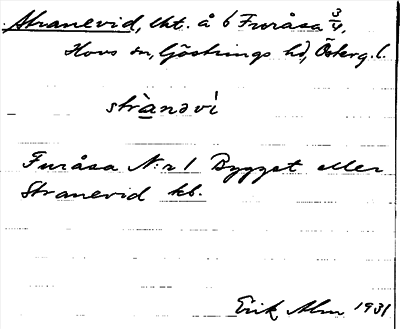 Stranevid, lht. å 6 Furåsa 3/4,
Hovs sn, Göstrings hd, Österg. l.
strànəvì
Furåsa N:r 1 Bygget eller
Stranevid kb.
Erik Alm 1931